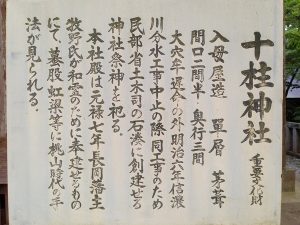 十柱神社 重要文化財
入母屋造 單層 茅葺
間口二間半 奥行三間
大穴牟遅命の外明治六年信濃
川分水工事中止の際同工事のため
民部省土木司の石湊に創建せる
神社祭神を祀る。
本社殿は元禄七年長岡藩主
牧野氏が和霊のために奉建せるもの
にて、蟇股、虹梁等に桃山時代の手
法が見られる。